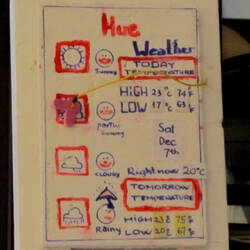 Hue
Weather
TODAY
TEMPERATURE
Sunny
HIGH 23°C 74°F
LOW 17°C 63°F
partly
sunny
Sat
Dec
7th
cloudy
Right now 20°C
TOMORROW
TEMPERATURE
Rainy
HIGH 23
LOW 20